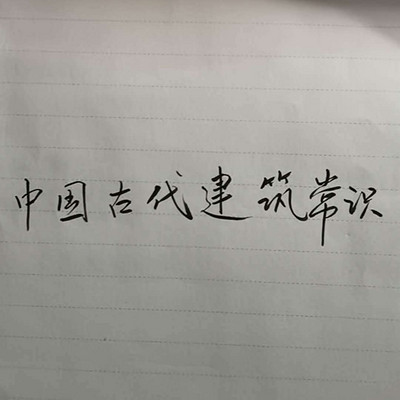 中国古代建筑常识